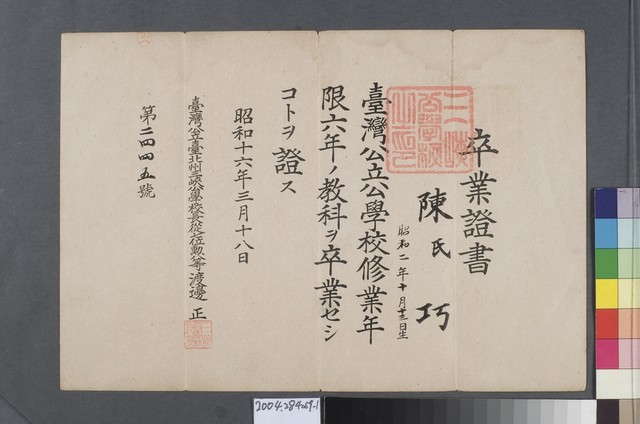 卒業證書
陳氏巧
昭和二年十月廿三日生
臺灣公立公學校修業年
限六年ノ教科ヲ卒業セシ
コトヲ證ス
昭和十六年三月十八日
臺灣公立臺北州三峽公學校長從七位勲八等渡邊正
第二四四五號
2004.28.4069-1